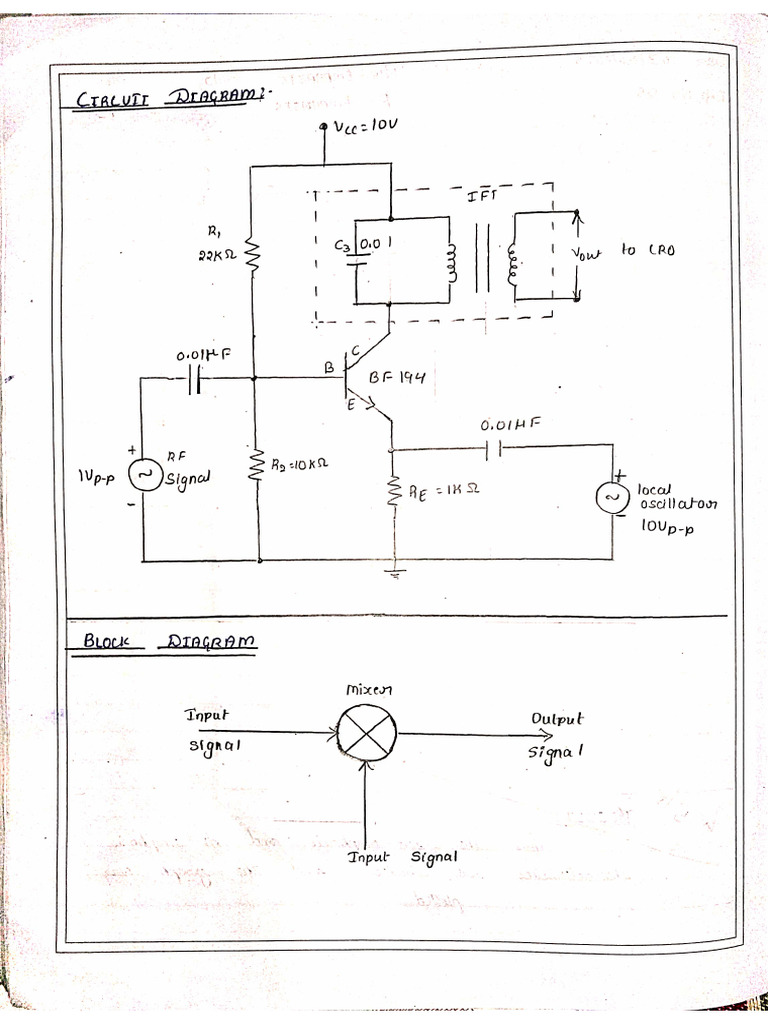 CIRCUIT DIAGRAM:-
Vcc = 10V
IFT
R1
22KΩ
C3 0.01
Vout to CRO
0.01µF
B
C
BF 194
E
0.01µF
+
1Vp-p
RF
Signal
-
R2=10KΩ
RE = 1KΩ
+
local
oscillator
-
10Vp-p
BLOCK DIAGRAM
Mixer
Input
Signal
Output
Signal
Input Signal